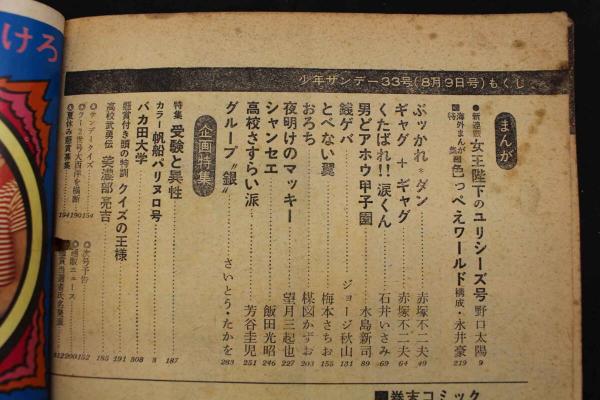 けろ
少年サンデー33号(8月9日号)もくじ
まんが
●新連載・女王陛下のユリシーズ号 野口太陽 9
海外まんが 色っぺえワールド 構成・永井豪 219
ぶッかれ*ダン 赤塚不二夫 49
ギャグ+ギャグ 赤塚不二夫 64
くたばれ!!涙くん 石井いさみ 69
男どアホウ甲子園 水島新司 89
銭ゲバ ジョージ秋山 131
とべない翼 梅本さちお 155
おろち 楳図かずお 203
夜明けのマッキー 望月三起也 227
シャンセエ 飯田光昭 246
高校さすらい派 芳谷圭児 251
グループ“銀” さいとう・たかを 283
企画特集
特集 受験と異性 187
カラー 帆船パリヌロ号 3
バカ田大学 308
懸賞付き頭の特訓 クイズの王様 191
高校武勇伝 美濃部亮吉 185
◎サンデークイズ 154
◎クー2世号大西洋を横断 190
◎夏休み懸賞募集 194
◎次号予告 152
◎通販ニュース 200
312
巻末コミック